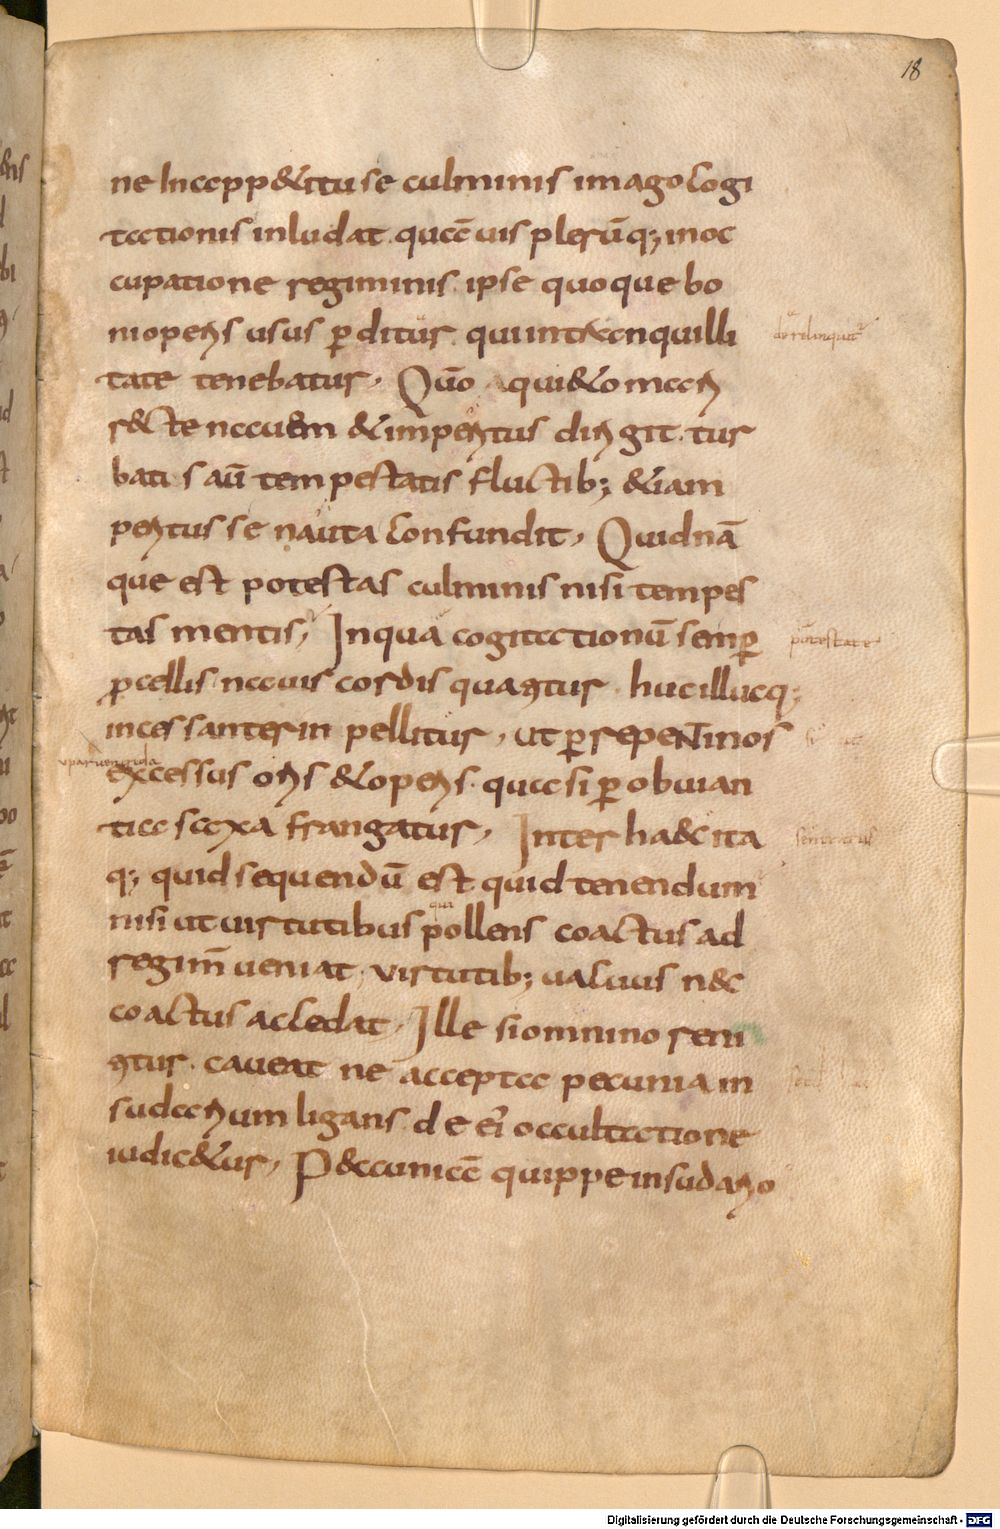 18
ne In app&itu se culminis imago cogi
tationis inludat quā uis plerūq; in oc
cupatione regiminis ipse quoque bo
ni operis usus p̱ditur qui in tranquilli
derelinquit
tate tenebatur, Quō qui&o mari
r&te nauem & imperitus dirigit tur
bati s aū tempestatis fluctib; &iam
peritus se nauta confundit, Quid nā
que est potestas culminis nisi tempes
tas mentis, In qua cogitationū semp̱
potestate
p̱cellis nauis cordis quatitur huc illucq;
incessanter inpellitur, ut p̱ repeNtinos
excessus oris & operis quasi p̱ obuian
tia saxa frangatur, Inter ha&c ita
q; quid sequendū est quid tenendum
qui
nisi ut uirtutibus pollens coactus ad
regim̄ ueniat, virtutib; uacuus n&c
coactus accedat, Ille si omnino reni
titur caueat ne accepta pecunia in
sudarium ligans de ei occultatione
iudic&ur, P&cuniā quippe in sudario
Digitalisierung gefördert durch die Deutsche Forschungsgemeinschaft - DFG